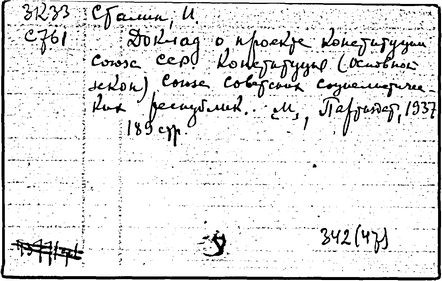 3К33 Сталин, И.
С761 Доклад о проекте Конституции
Союза ССР. Конституция (Основной
закон) Союза Советских социалистичес
ких республик. М., Партиздат, 1937
189 стр.
342(47)